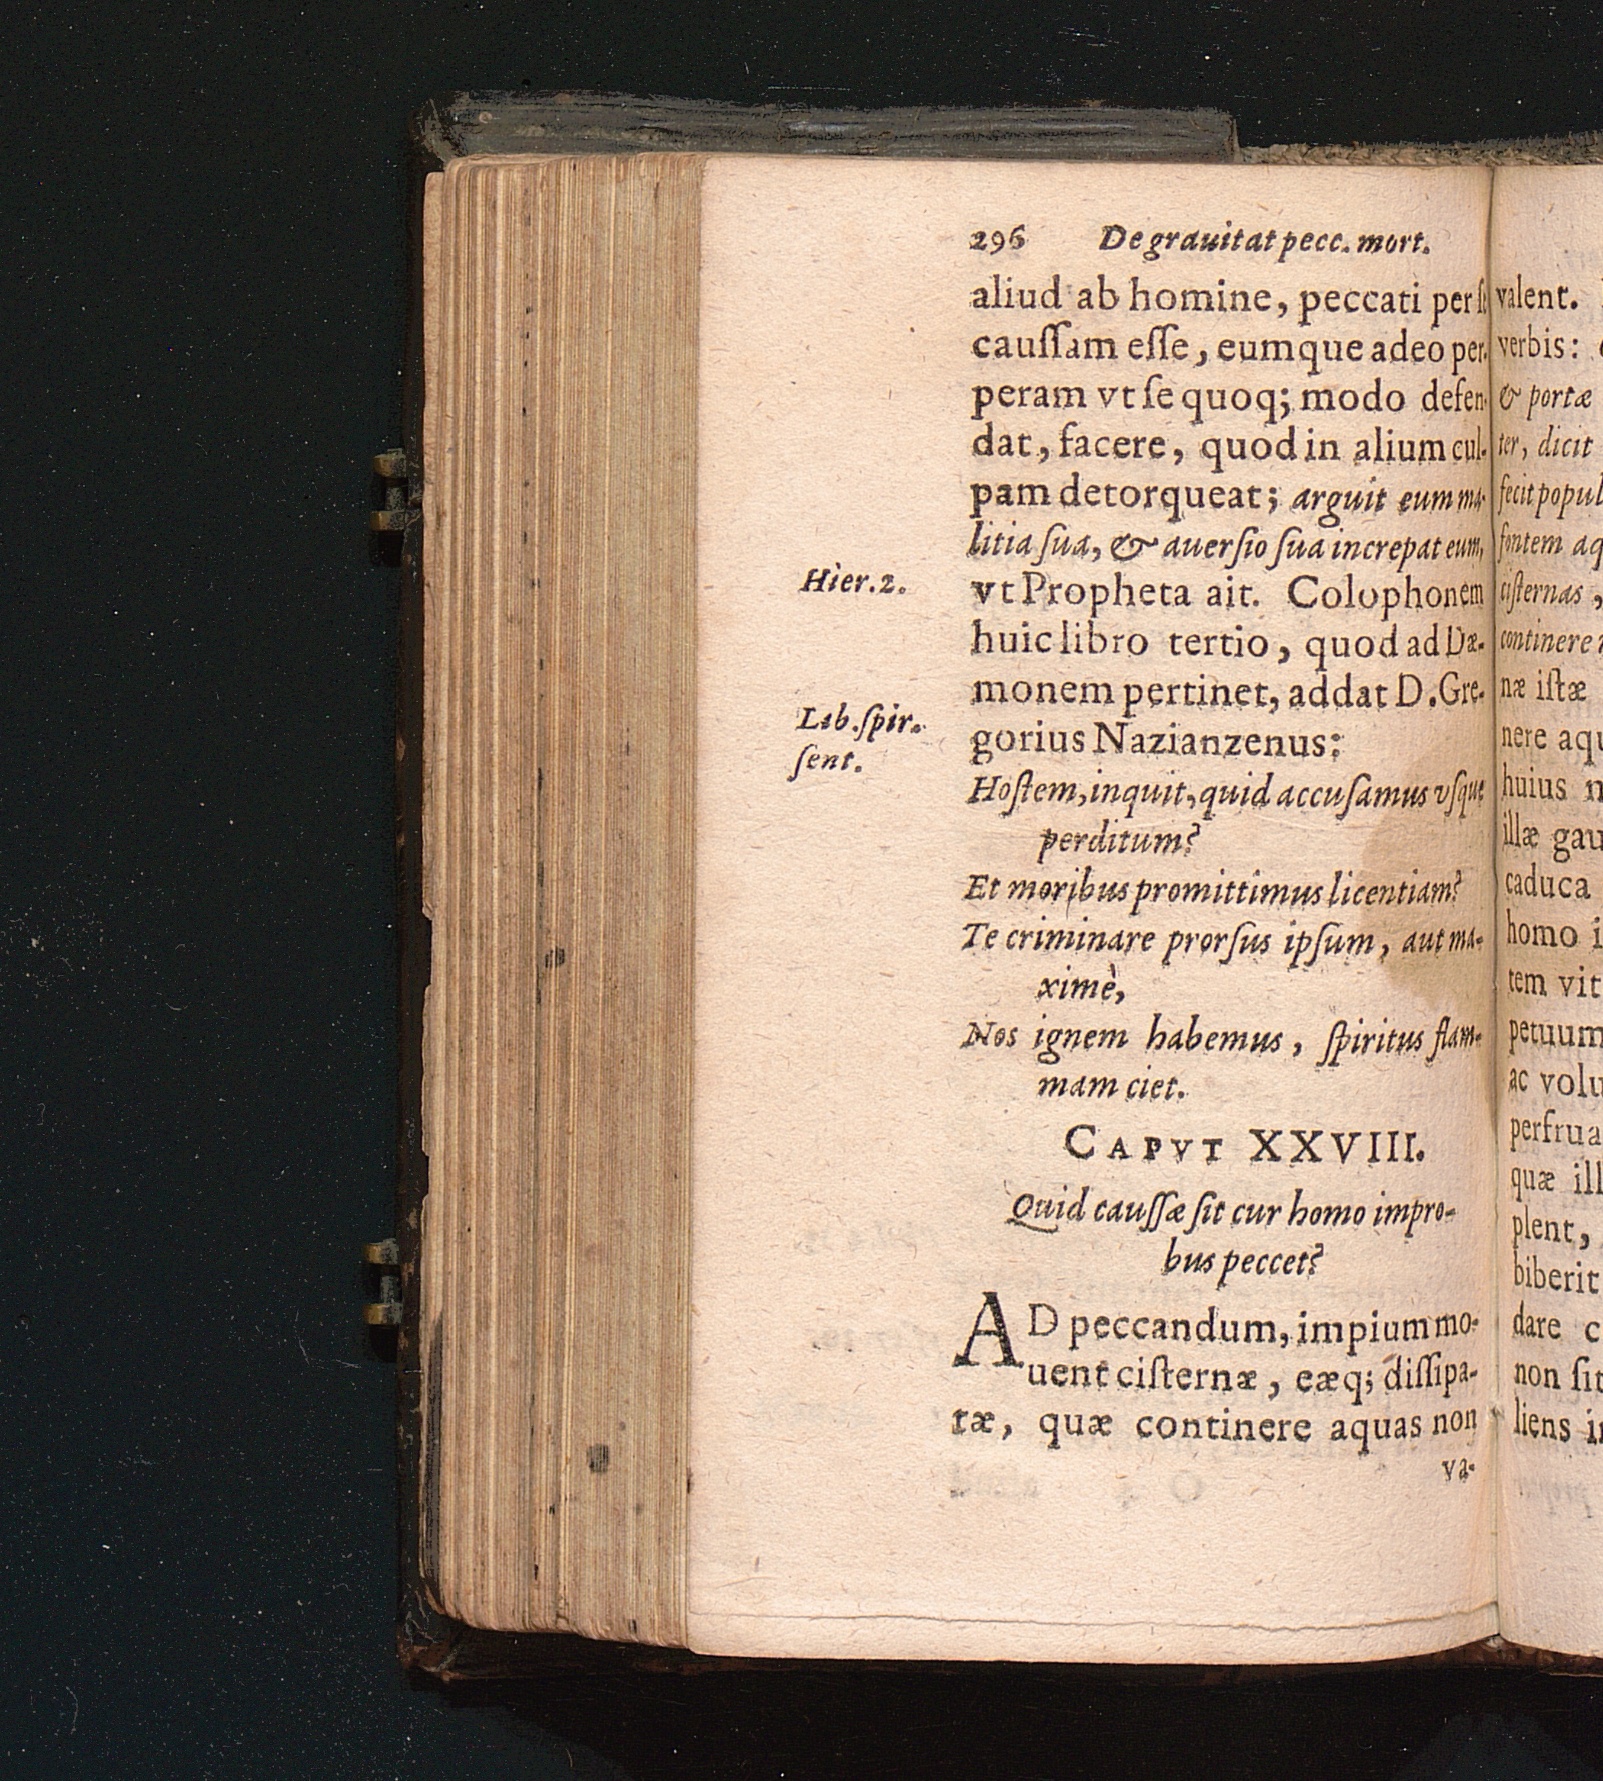 296 De grauitat pecc. mort.
aliud ab homine, peccati per ſe
cauſſam eſſe, eumque adeo per-
peram vt ſe quoq; modo defen-
dat, facere, quod in alium cul-
pam detorqueat; arguit eum ma-
litia ſua, & auerſio ſua increpat eum,
Hier.2.
vt Propheta ait. Colophonem
huic libro tertio, quod ad Dæ-
monem pertinet, addat D. Gre-
Lib. ſpir.
ſent.
gorius Nazianzenus:
Hoſtem, inquit, quid accuſamus vſque
perditum?
Et moribus promittimus licentiam?
Te criminare prorſus ipſum, aut ma-
ximè,
Nos ignem habemus, ſpiritus flam-
mam ciet.
CAPVT XXVIII.
Quid cauſſæ ſit cur homo impro-
bus peccet?
AD peccandum, impium mo-
uent ciſternæ, eæq; diſſipa-
tæ, quæ continere aquas non
va-
valent.
verbis:
& portæ
ter, dicit
fecit popul
fontem aq
ciſternas,
continere
næ iſtæ
nere aqu
huius
illæ gau
caduca
homo i
tem vit
petuum
ac volu
perfrua
quæ ill
plent,
biberit
dare c
non ſit
liens in